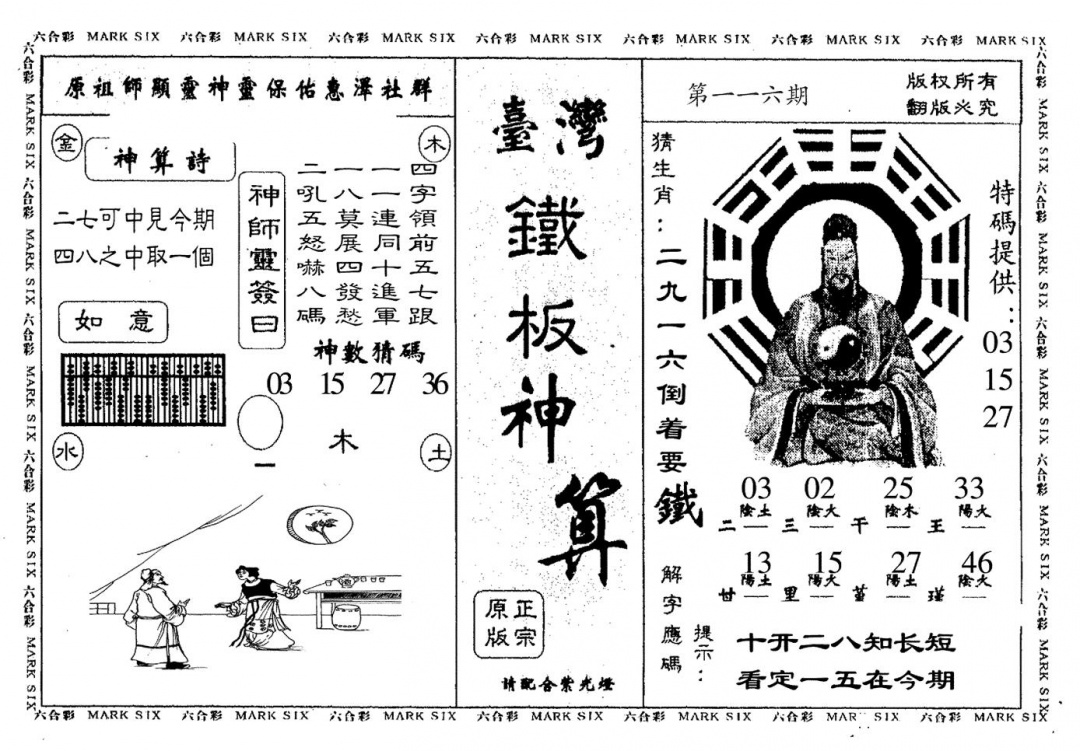 六合彩 MARK SIX 六合彩 MARK SIX 六合彩 MARK SIX 六合彩 MARK SIX 六合彩 MARK SIX 六合彩 MARK SIX 六合彩 MARK SIX
六合彩 MARK SIX 六合彩 MARK SIX 六合彩 MARK SIX 六合彩 MARK SIX 六合彩 MARK SIX
原祖師顯靈神靈保佑惠澤社群
金
木
神算詩
二七可中見今期
四八之中取一個
如意
神師靈簽曰
四字領前五七跟
一一連同十進軍
一八莫展四發愁
二吼五怒嚇八碼
神數猜碼
03 15 27 36
木
一
水
土
臺灣
鐵板神算
正宗
原版
請配合紫光燈
第一一六期
版权所有
翻版必究
猜生肖：二九一六倒着要鐵
特碼提供：
03
15
27
03 02 25 33
陰土 陰火 陰木 陽火
二 三 干 王
13 15 27 46
陽土 陽火 陽土 陰火
甘 里 瑾
解字應碼
提示：
十开二八知长短
看定一五在今期
六合彩 MARK SIX 六合彩 MARK SIX 六合彩 MARK SIX 六合彩 MARK SIX 六合彩 MARK SIX
六合彩 MARK SIX 六合彩 MARK SIX 六合彩 MARK SIX 六合彩 MARK SIX 六合彩 MARK SIX 六合彩 MARK SIX 六合彩 MARK SIX